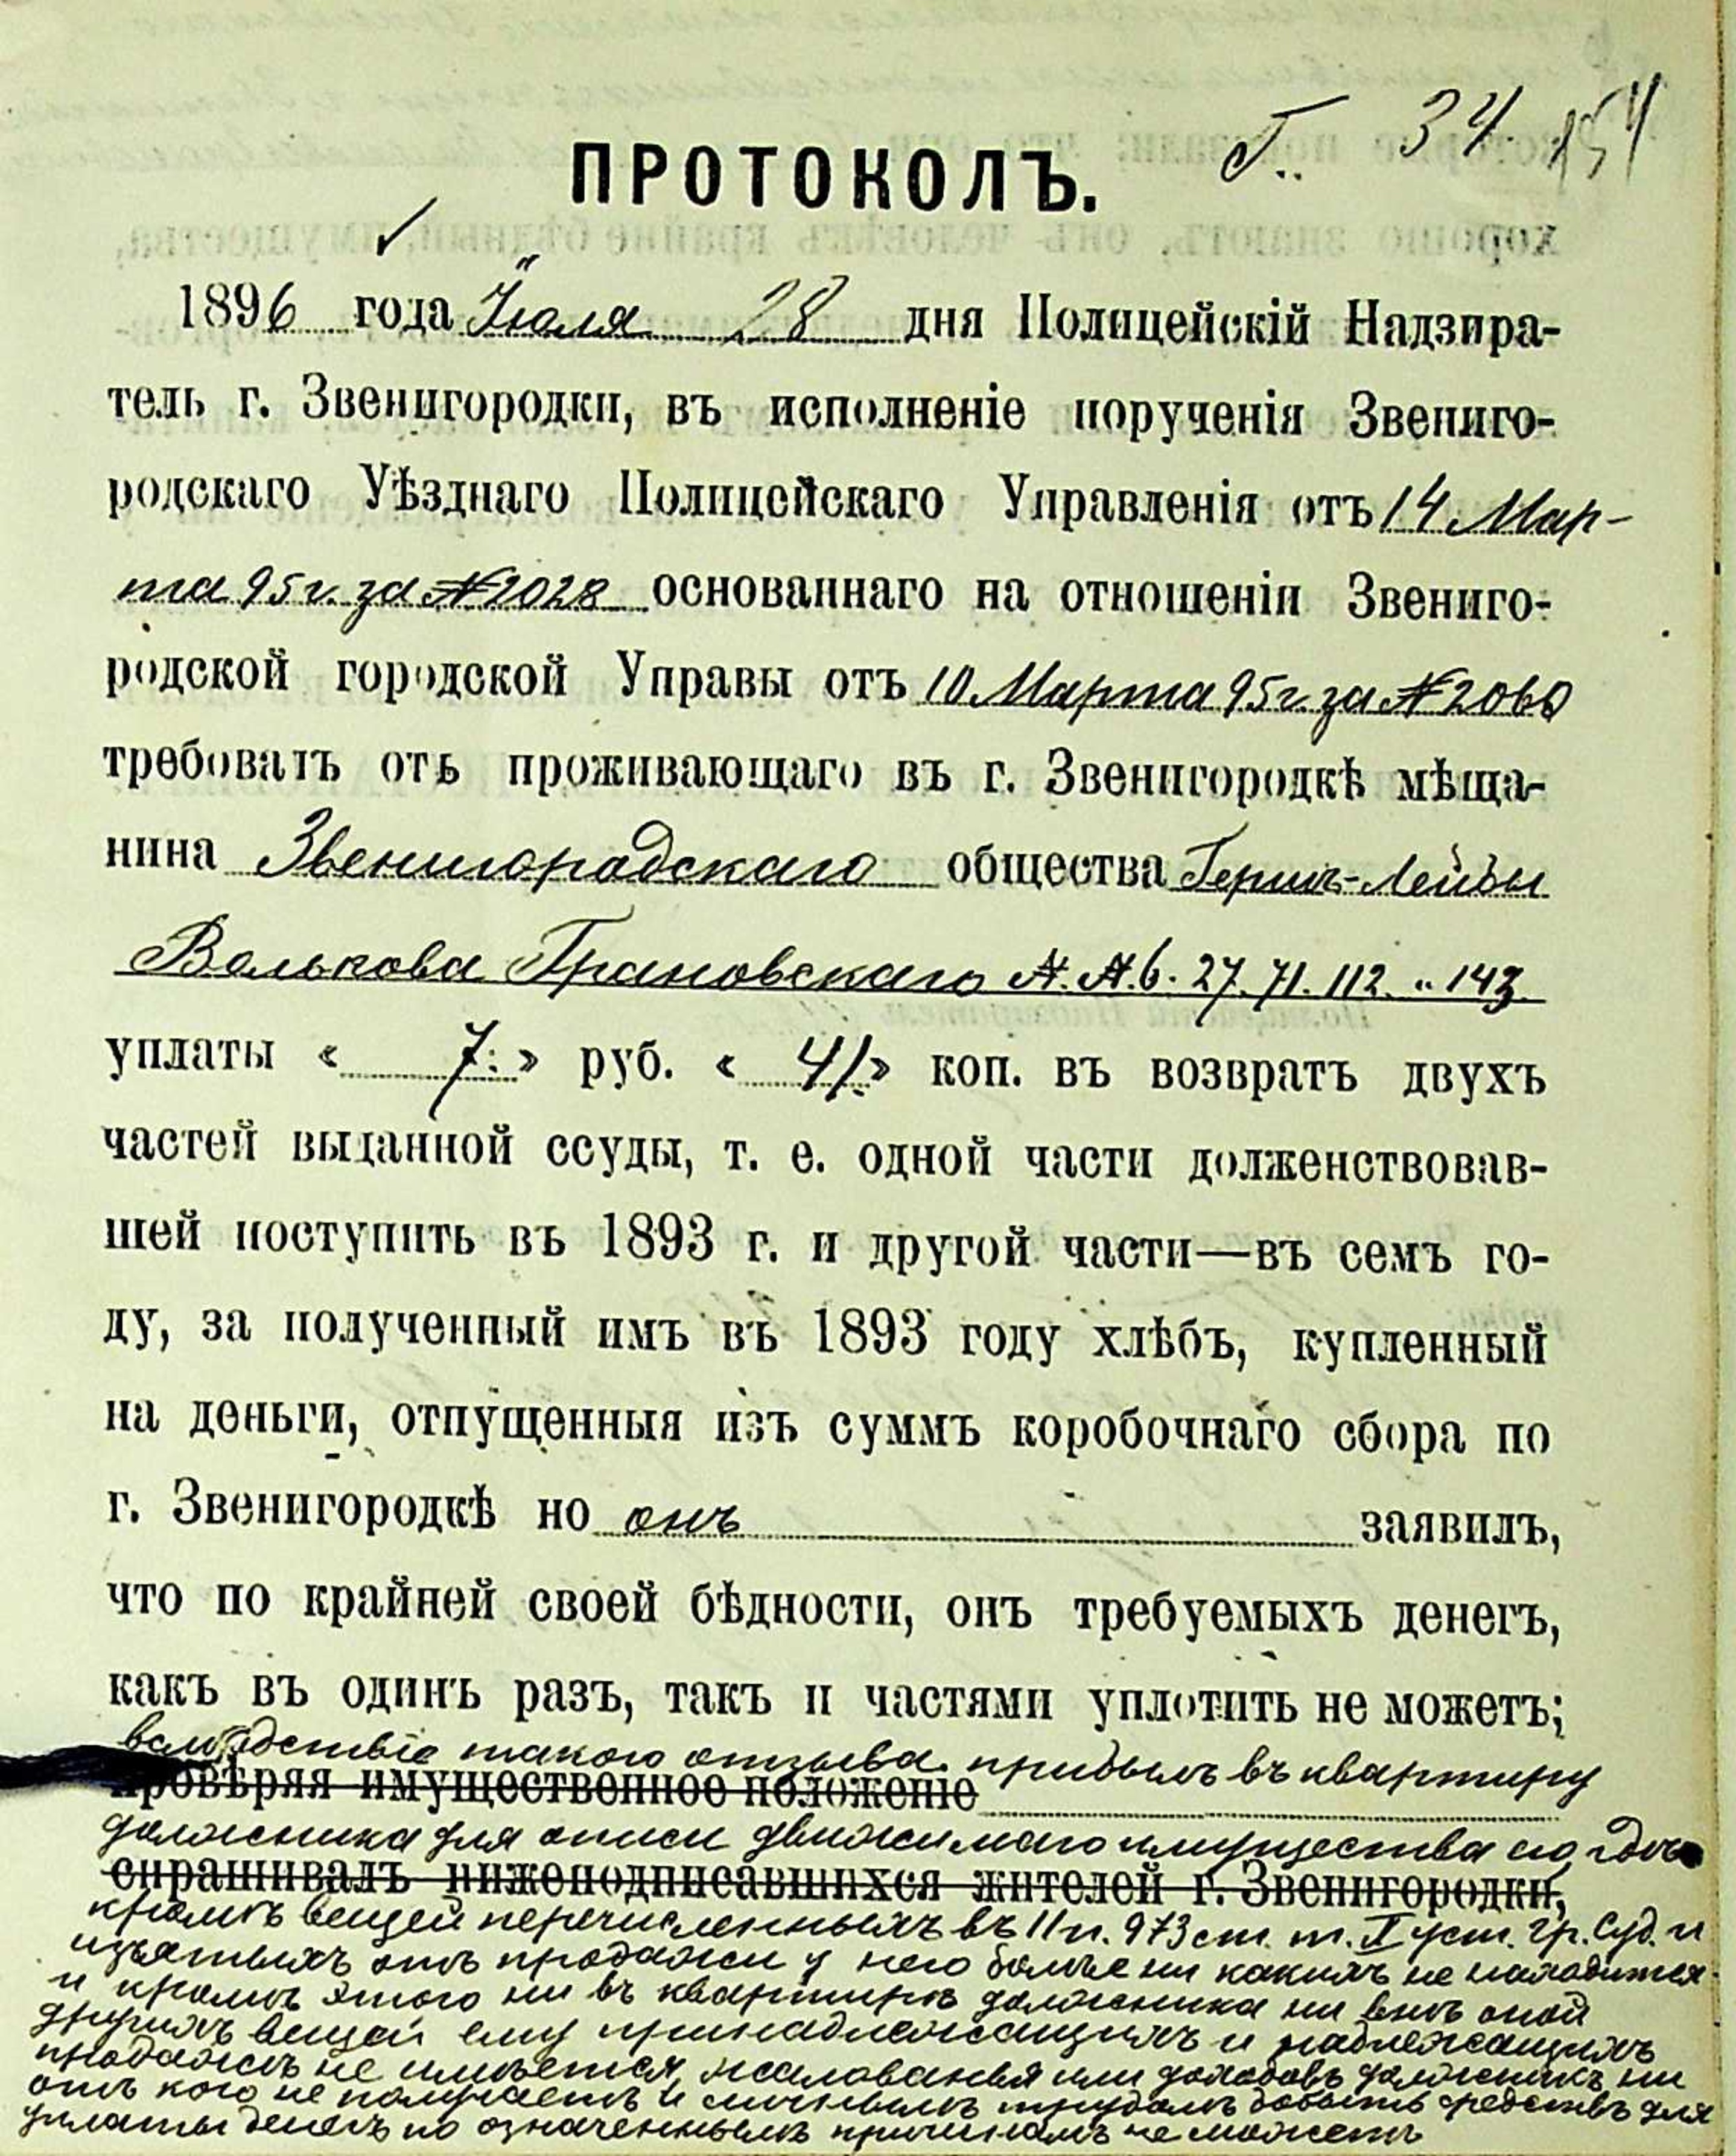 Г.. 34 154
ПРОТОКОЛЪ.
1896 года Іюля 28 дня Полицейскій Надзира-
тель г. Звенигородки, въ исполненіе порученія Звениго-
родскаго Уѣзднаго Полицейскаго Управленія отъ 14 Мар-
та 95 г. за № 2028 основаннаго на отношеніи Звениго-
родской городской Управы отъ 10 Марта 95 г. за № 2060
требовалъ отъ проживающаго въ г. Звенигородкѣ мѣща-
нина Звенигородскаго общества Герш-Лейбы
Валькова Грановскаго №.№. 6. 27. 71. 112. " 143
уплаты « 7: » руб. « 41 » коп. въ возвратъ двухъ
частей выданной ссуды, т. е. одной части долженствовав-
шей поступить въ 1893 г. и другой части—въ семъ го-
ду, за полученный имъ въ 1893 году хлѣбъ, купленный
на деньги, отпущенныя изъ суммъ коробочнаго сбора по
г. Звенигородкѣ но онъ заявилъ,
что по крайней своей бѣдности, онъ требуемыхъ денегъ,
какъ въ одинъ разъ, такъ и частями уплотить не можетъ;
вслѣдствіе такого отзыва прибылъ въ квартиру
провѣряя имущественное положеніе
должника для описи движимаго имущества его, гдѣ
спрашивалъ нижеподписавшихся жителей г. Звенигородки,
кромѣ вещей перечисленныхъ въ 11 п. 973 ст. т. X уст. гр. Суд. и
изъятыхъ отъ продажи у него болѣе ни какихъ не находится
и кромѣ этого ни въ квартирѣ должника ни внѣ оной
другихъ вещей ему принадлежащихъ и подлежащихъ
продажѣ не имѣется, жалованья или доходовъ должникъ ни
отъ кого не получаетъ и личнымъ трудомъ добыть средствъ для
уплаты денегъ по означеннымъ причинамъ не можетъ